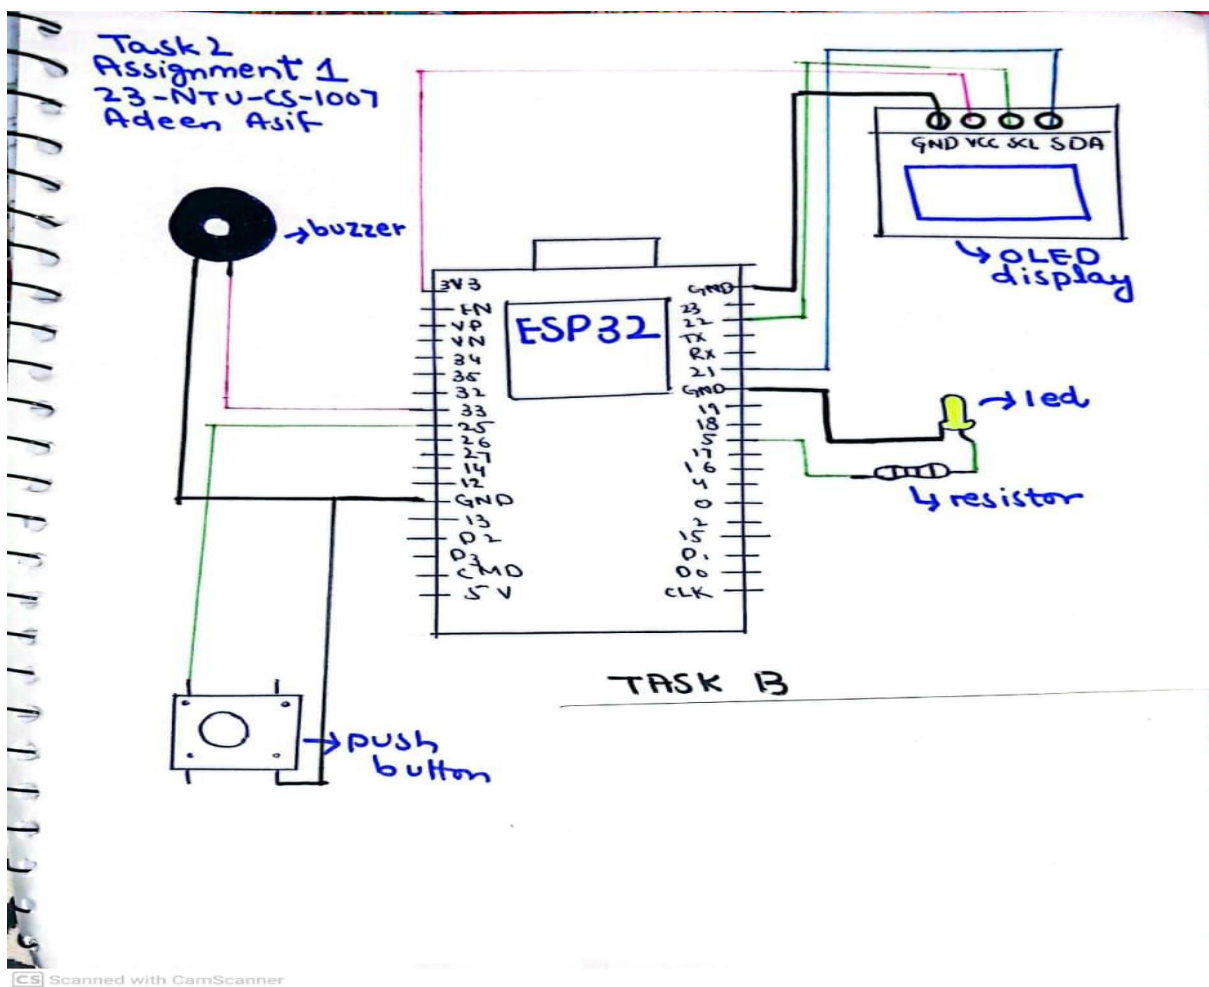 Task 2
Assignment 1
23-NTU-CS-1007
Adeen Asif
GND VCC SCL SDA
→buzzer
↳ OLED
display
ESP32
3V3
EN
VP
VN
34
35
32
33
25
26
27
14
12
GND
13
D2
D3
CMD
5V
GND
23
22
TX
RX
21
GND
19
18
5
17
16
4
0
2
15
D1
D0
CLK
→led
↳resistor
TASK B
→push
button
CS Scanned with CamScanner